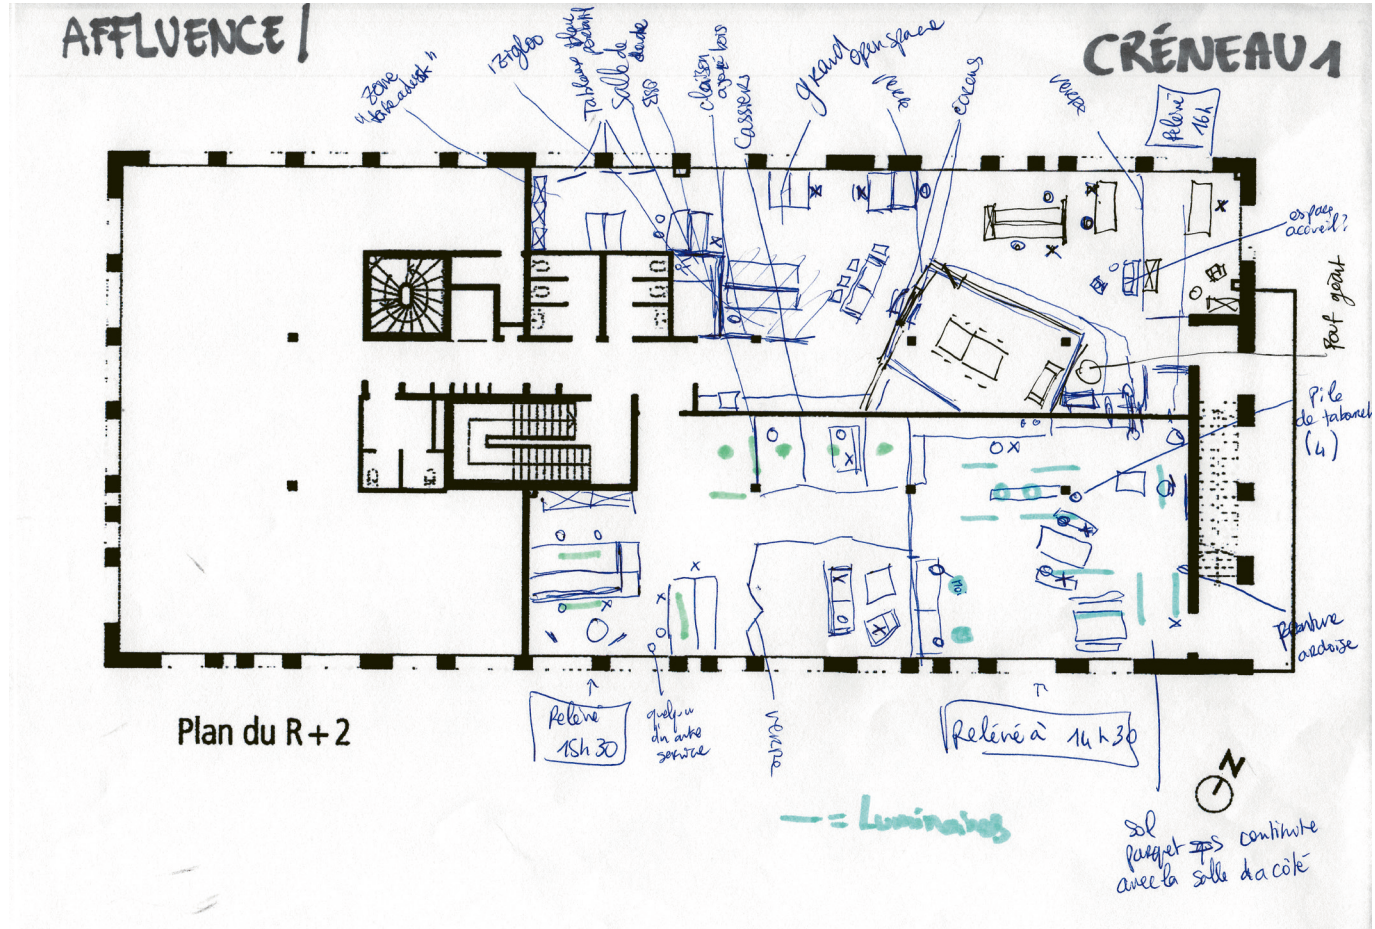 AFFLUENCE /
CRÉNEAU 1
"Zone
"
Tableau blanc
Salle de
cloison
ajouré bois
Cassiers
grand
openspace
verre
cocons
verre
Relevé
16h
espace
accueil?
Pouf géant
Pile
de tabouret
(4)
Peinture
ardoise
Plan du R + 2
Relevé
15h30
quelqu'un
d'un autre
service
verre
Relevé à 14h30
= Luminaires
N
sol
parquet continuité
avec la salle d'a côté